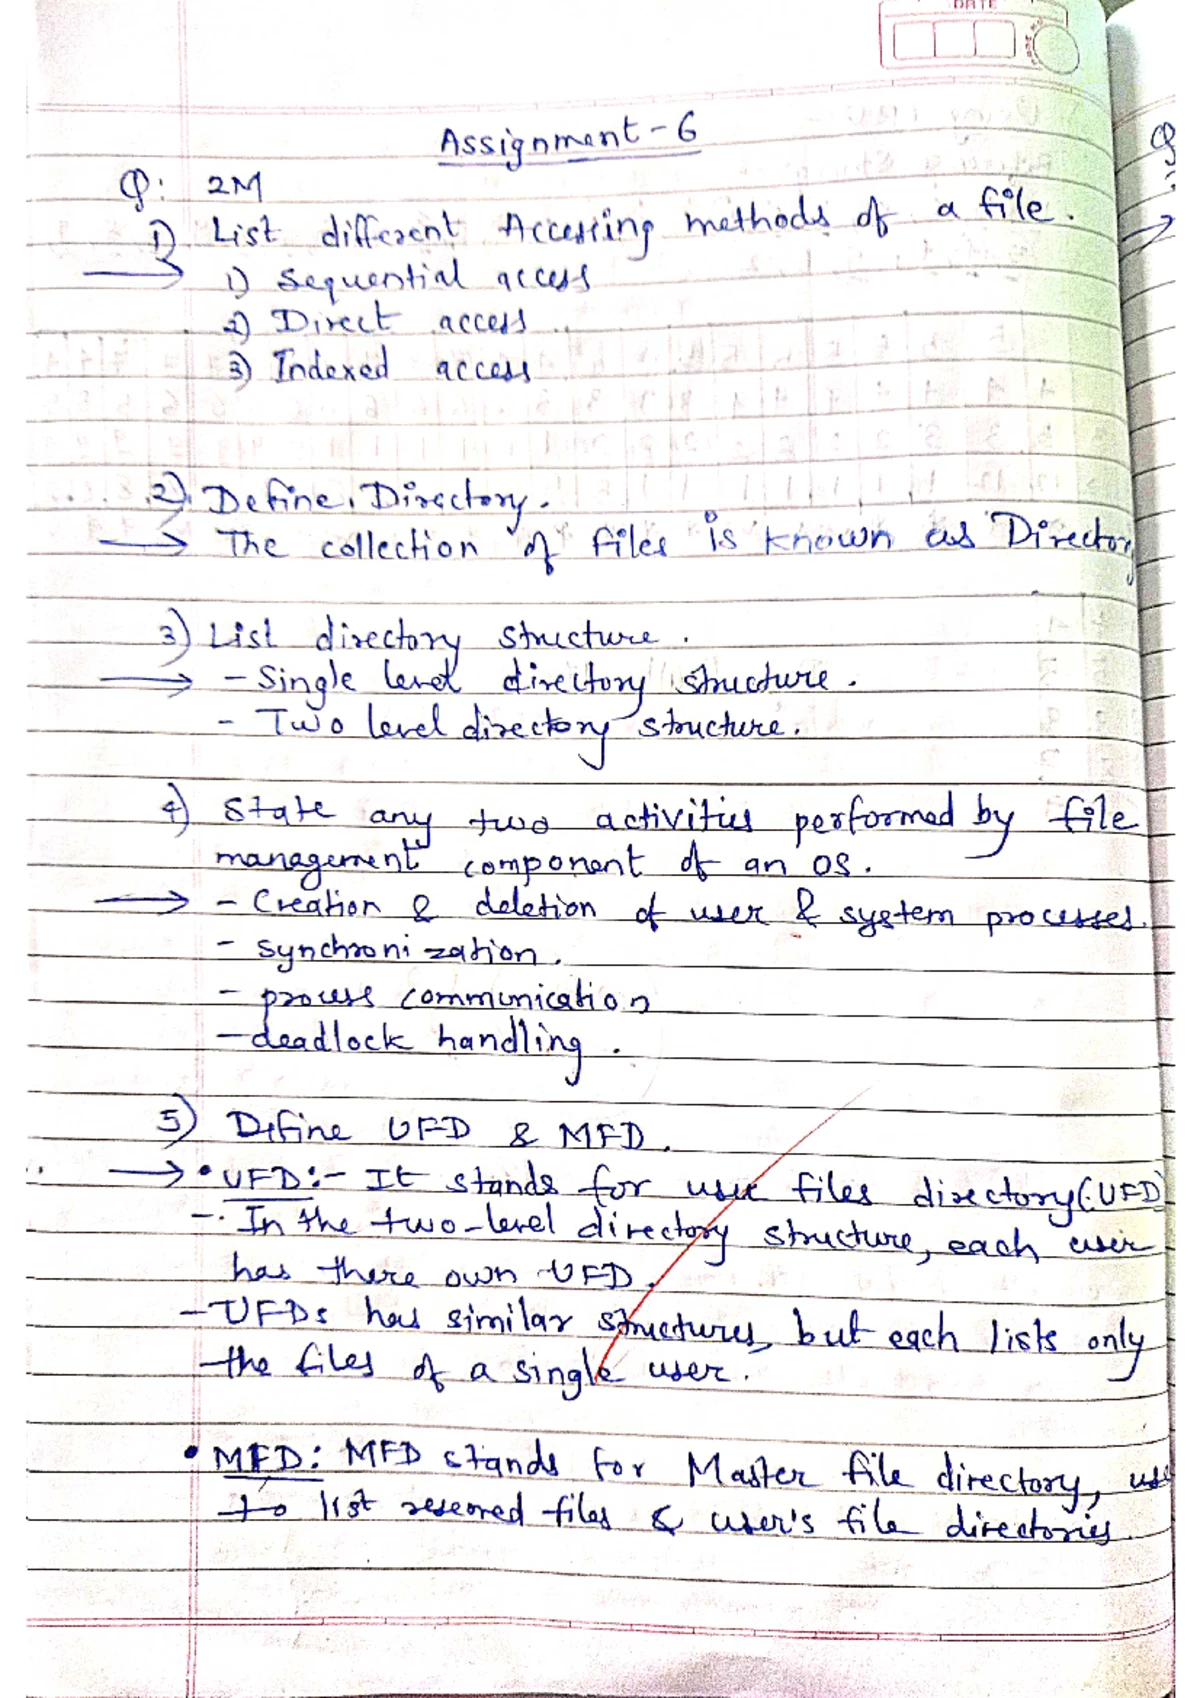 DATE
Assignment-6
Q: 2M
1) List different Accessing methods of a file.
→ 1) Sequential access
2) Direct access
3) Indexed access
2) Define Directory.
→ The collection of files is known as Director
3) List directory structure.
→ - Single level directory structure.
- Two level directory structure.
4) State any two activities performed by file
management component of an OS.
→ - Creation & deletion of user & system processes.
- synchronization.
- process communication
- deadlock handling.
5) Define UFD & MFD.
→ • UFD:- It stands for user files directory(UFD)
- In the two-level directory structure, each user
has there own UFD.
- UFDs has similar structures, but each lists only
the files of a single user.
• MFD: MFD stands for Master file directory,
to list reserved files & user's file directories